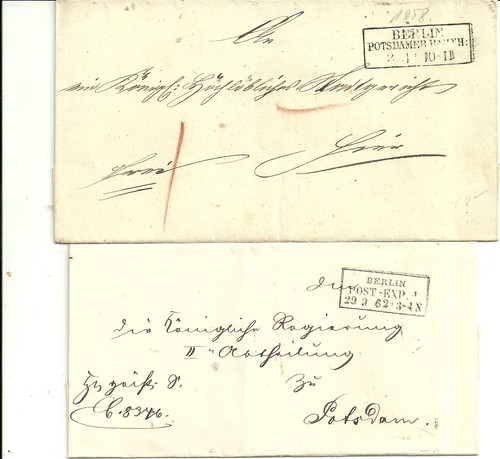 1858.
BERLIN
POTSDAMER BAHNH:
10-11
An
ein Königl: Hochlöbliches Stadtgericht
frei
hier
BERLIN
POST-EXP. 1
29 9 62 3-4N
die Königliche Regierung
II Abtheilung
zu
C. 8376.
Potsdam.